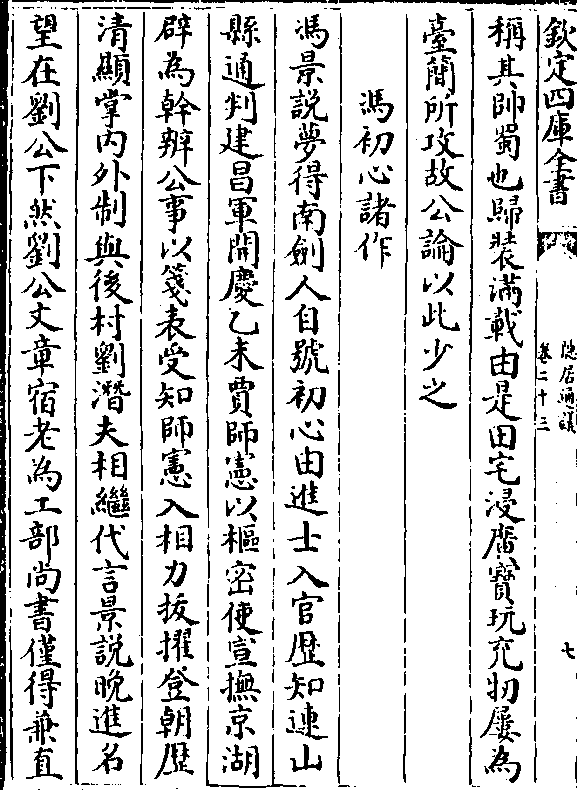 欽定四庫全書
隱居通議
卷二十三
七
稱其帥蜀也歸裝滿載由是田宅浸廣寳玩充牣屢為
臺簡所攻故公論以此少之
馮初心諸作
馮景説夢得南劍人自號初心由進士入官歴知連山
縣通判建昌軍開慶乙未賈師憲以樞密使宣撫京湖
辟為幹辨公事以箋表受知師憲入相力拔擢登朝歴
清顯掌内外制與後村劉潛夫相繼代言景説晩進名
望在劉公下然劉公文章宿老為工部尚書僅得兼直